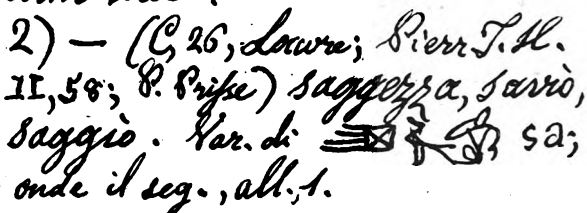 2) — (C, 26, Louvre; Pierr. T. H.
II, 58; P. Prisse) saggezza, savio,
saggio. Var. di sa;
onde il seg., all. 1.